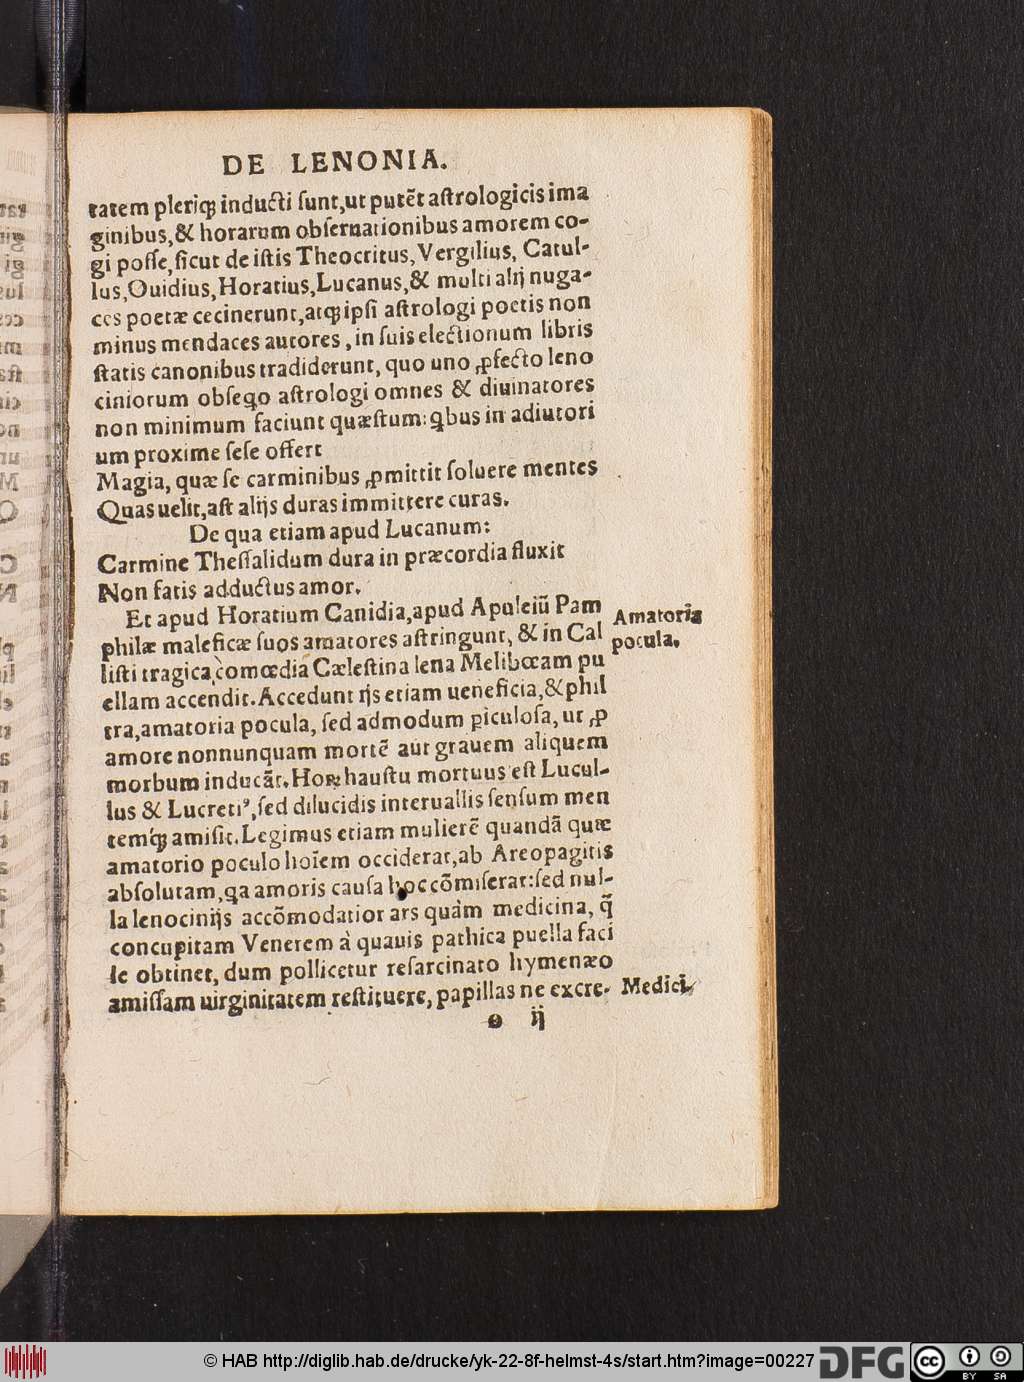 DE LENONIA.
tatem pleriqꝫ inducti ſunt,ut putēt aſtrologicis ima
ginibus,& horarum obſeruationibus amorem co-
gi poſſe,ſicut de iſtis Theocritus,Vergilius, Catul-
lus,Ouidius,Horatius,Lucanus,& multi alij nuga-
ces poetæ cecinerunt,atqꝫ ipſi aſtrologi poetis non
minus mendaces autores, in ſuis electionum libris
ſtatis canonibus tradiderunt, quo uno ꝓfecto leno
ciniorum obſeꝗo aſtrologi omnes & diuinatores
non minimum faciunt quæſtum: ꝗbus in adiutori
um proxime ſeſe offert
Magia, quæ ſe carminibus ꝓmittit ſoluere mentes
Quas uelit,aſt alijs duras immittere curas.
De qua etiam apud Lucanum:
Carmine Theſſalidum dura in præcordia fluxit
Non fatis adductus amor.
Et apud Horatium Canidia,apud Apuleiū Pam
philæ maleficæ ſuos amatores aſtringunt, & in Cal
liſti tragica comœdia Cæleſtina lena Melibœam pu
ellam accendit. Accedunt ijs etiam ueneficia,& phil
tra,amatoria pocula, ſed admodum ꝑiculoſa, ut ꝓ
amore nonnunquam mortē aut grauem aliquem
morbum inducāt. Hoꝝ hauſtu mortuus eſt Lucul-
lus & Lucretiꝰ,ſed dilucidis interuallis ſenſum men
temqꝫ amiſit. Legimus etiam mulierē quandā quæ
amatorio poculo hoīem occiderat,ab Areopagitis
abſolutam,ꝗa amoris cauſa hoc cōmiſerat:ſed nul-
la lenocinijs accōmodatior ars quàm medicina, q̃
concupitam Venerem à quauis pathica puella faci
le obtinet, dum pollicetur reſarcinato hymenæo
amiſſam uirginitatem reſtituere, papillas ne excre-
o ij
Amatoria
pocula.
Medici
© HAB http://diglib.hab.de/drucke/yk-22-8f-helmst-4s/start.htm?image=00227
DFG
cc
BY SA